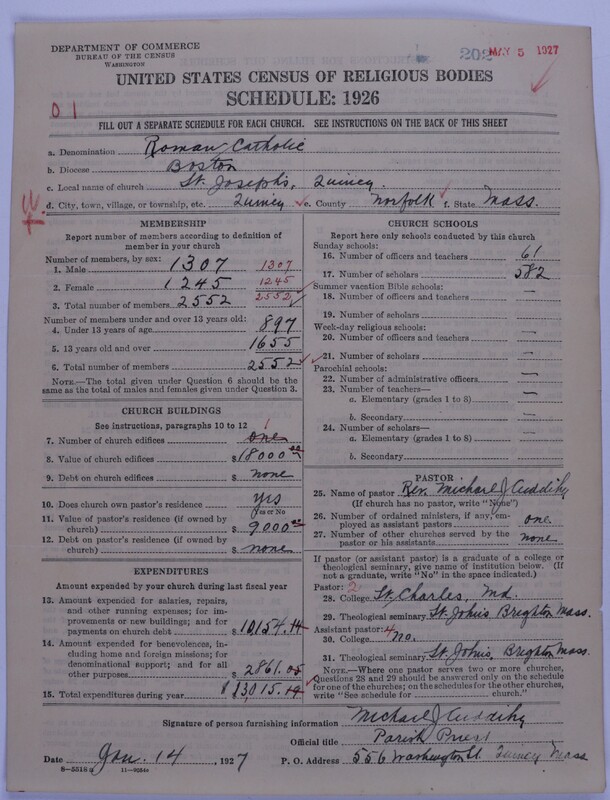 DEPARTMENT OF COMMERCE
BUREAU OF THE CENSUS
WASHINGTON
202
MAY 5 1927
UNITED STATES CENSUS OF RELIGIOUS BODIES
SCHEDULE: 1926
01
FILL OUT A SEPARATE SCHEDULE FOR EACH CHURCH. SEE INSTRUCTIONS ON THE BACK OF THIS SHEET
a. Denomination Roman Catholic
b. Diocese Boston
c. Local name of church St. Joseph's, Quincy
d. City, town, village, or township, etc. Quincy e. County Norfolk f. State Mass.
MEMBERSHIP
Report number of members according to definition of member in your church
Number of members, by sex:
1. Male 1307 1307
2. Female 1245 1245
3. Total number of members 2552 2552
Number of members under and over 13 years old:
4. Under 13 years of age 897
5. 13 years old and over 1655
6. Total number of members 2552
NOTE.—The total given under Question 6 should be the same as the total of males and females given under Question 3.
CHURCH BUILDINGS
See instructions, paragraphs 10 to 12
7. Number of church edifices one 1
8. Value of church edifices $18000.00
9. Debt on church edifices $ none
10. Does church own pastor's residence yes
Yes or No
11. Value of pastor's residence (if owned by church) $ 9000.00
12. Debt on pastor's residence (if owned by church) $ none
EXPENDITURES
Amount expended by your church during last fiscal year
13. Amount expended for salaries, repairs, and other running expenses; for improvements or new buildings; and for payments on church debt $10,154.14
14. Amount expended for benevolences, including home and foreign missions; for denominational support; and for all other purposes $ 2861.05
15. Total expenditures during year $13,015.19
CHURCH SCHOOLS
Report here only schools conducted by this church
Sunday schools:
16. Number of officers and teachers 61
17. Number of scholars 582
Summer vacation Bible schools:
18. Number of officers and teachers —
19. Number of scholars —
Week-day religious schools:
20. Number of officers and teachers —
21. Number of scholars —
Parochial schools:
22. Number of administrative officers —
23. Number of teachers—
a. Elementary (grades 1 to 8) —
b. Secondary —
24. Number of scholars—
a. Elementary (grades 1 to 8) —
b. Secondary —
PASTOR
25. Name of pastor Rev. Michael J Cuddihy
(If church has no pastor, write "None")
26. Number of ordained ministers, if any, employed as assistant pastors one.
27. Number of other churches served by the pastor or his assistants none
If pastor (or assistant pastor) is a graduate of a college or theological seminary, give name of institution below. (If not a graduate, write "No" in the space indicated.)
Pastor: 2
28. College St. Charles, Md.
29. Theological seminary St. John's Brighton Mass.
Assistant pastor: 4
30. College No.
31. Theological seminary St. John's, Brighton Mass.
NOTE.—Where one pastor serves two or more churches, Questions 28 and 29 should be answered only on the schedule for one of the churches; on the schedules for the other churches, write "See schedule for ______ church."
Signature of person furnishing information Michael J Cuddihy
Official title Parish Priest
Date Jan. 14, 1927 P. O. Address 556 Washington St. Quincy Mass